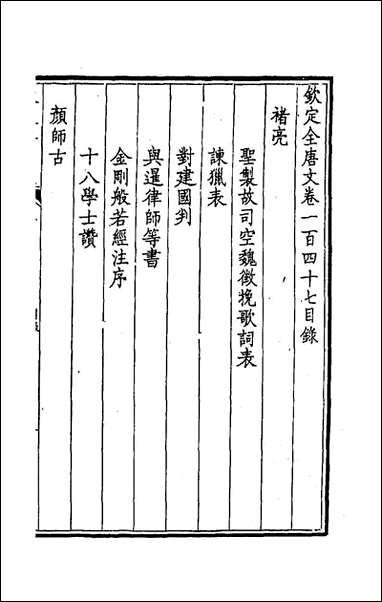 欽定全唐文卷一百四十七目錄
褚亮
聖製故司空魏徵挽歌詞表
諫獵表
對建國判
與暹律師等書
金剛般若經注序
十八學士讚
顏師古